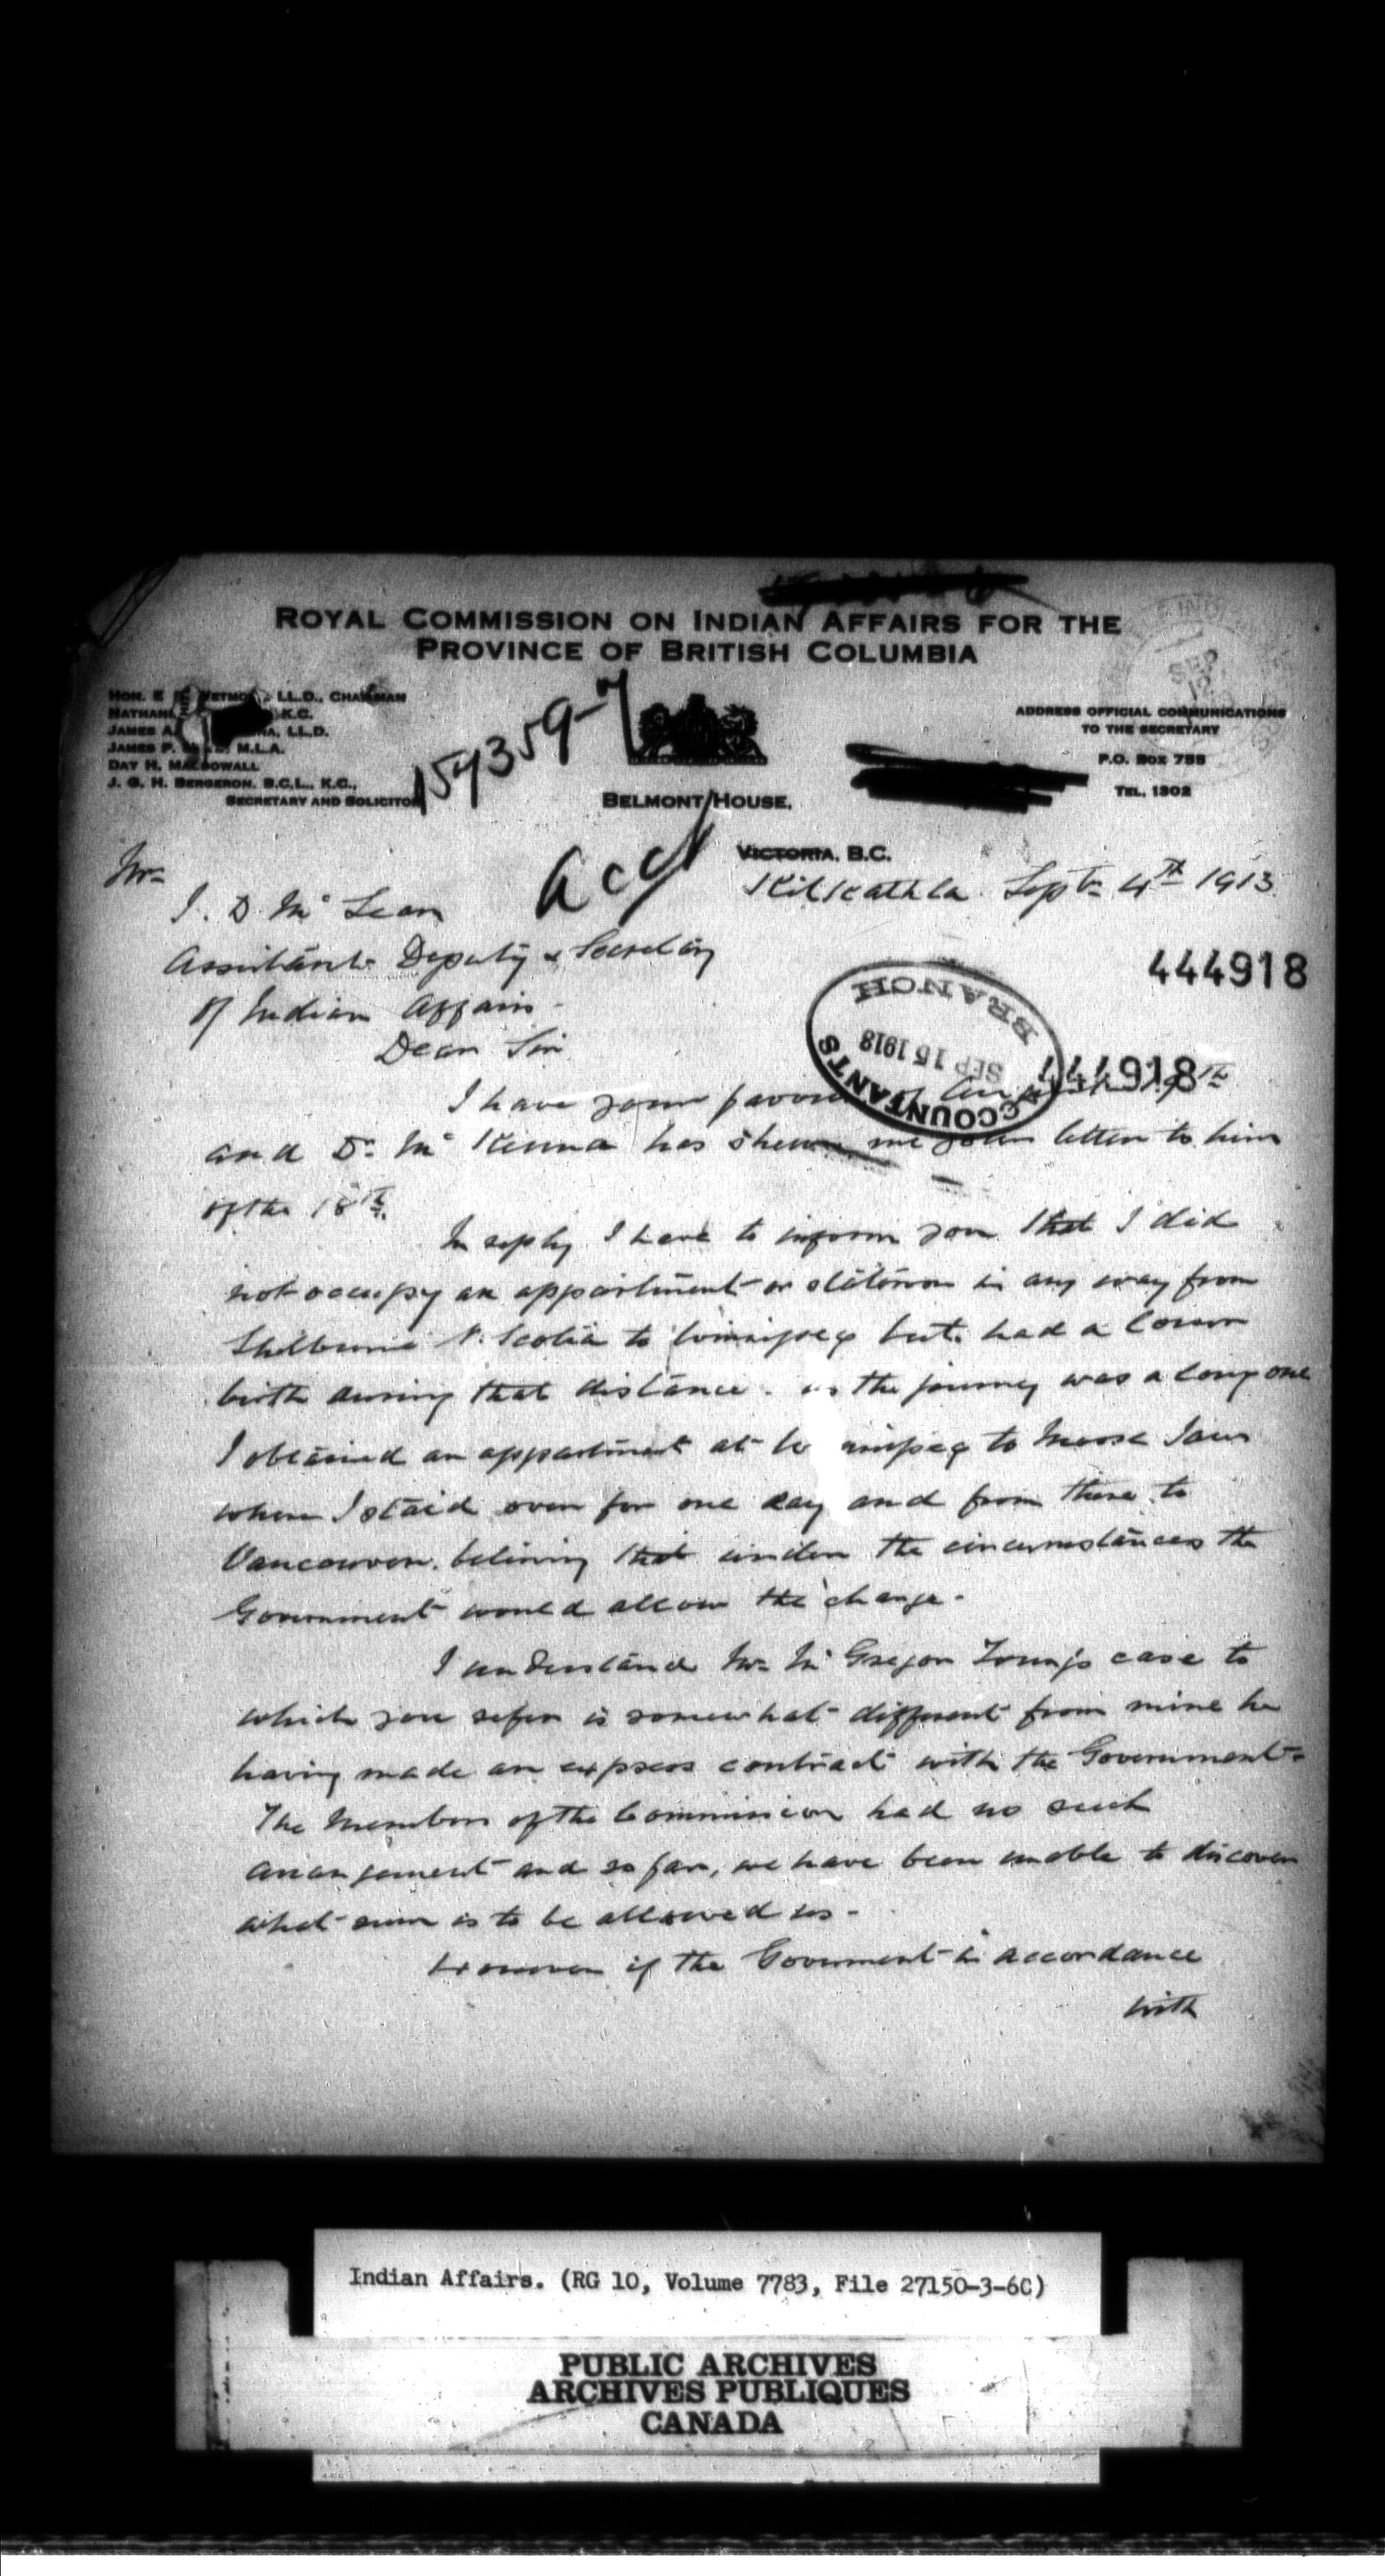 ROYAL COMMISSION ON INDIAN AFFAIRS FOR THE
PROVINCE OF BRITISH COLUMBIA
HON. E LL.D., CHAIRMAN
K.C.
JAMES A. LL.D.
JAMES P. M.L.A.
DAY H. MACDOWALL
J. G. H. BERGERON, B.C.L., K.C.,
SECRETARY AND SOLICITOR
159359-7
SEP
12
ADDRESS OFFICIAL COMMUNICATIONS
TO THE SECRETARY
P.O. BOX 755
TEL. 1302
BELMONT HOUSE,
VICTORIA, B.C.
acct
Kitkathla Sept. 4th 1913
Mr.
J. D. Mc Lean
Assistant Deputy & Secretary
of Indian Affairs
444918
Dear Sir
ACCOUNTANTS
SEP 15 1913
BRANCH
444918
I have your favour of August 19th
and Dr. Mc Kenna has shewn me your letter to him
of the 18th.
In reply I have to inform you that I did
not occupy an appartment or stateroom in any way from
Shelburne N. Scotia to Winnipeg but had a lower
birth during that distance. as the journey was a long one
I obtained an appartment at Winnipeg to Moose Jaw
where I staid over for one day and from there to
Vancouver. beliving that under the circumstances the
Government would allow the charge.
I understand Mr. Mc Gregor Young's case to
which you refer is somewhat different from mine he
having made an express contract with the Government.
The Members of the Commission had no such
arrangement and so far, we have been unable to discover
what sum is to be allowed us.
However if the Government in accordance
with
Indian Affairs. (RG 10, Volume 7783, File 27150-3-6C)
PUBLIC ARCHIVES
ARCHIVES PUBLIQUES
CANADA